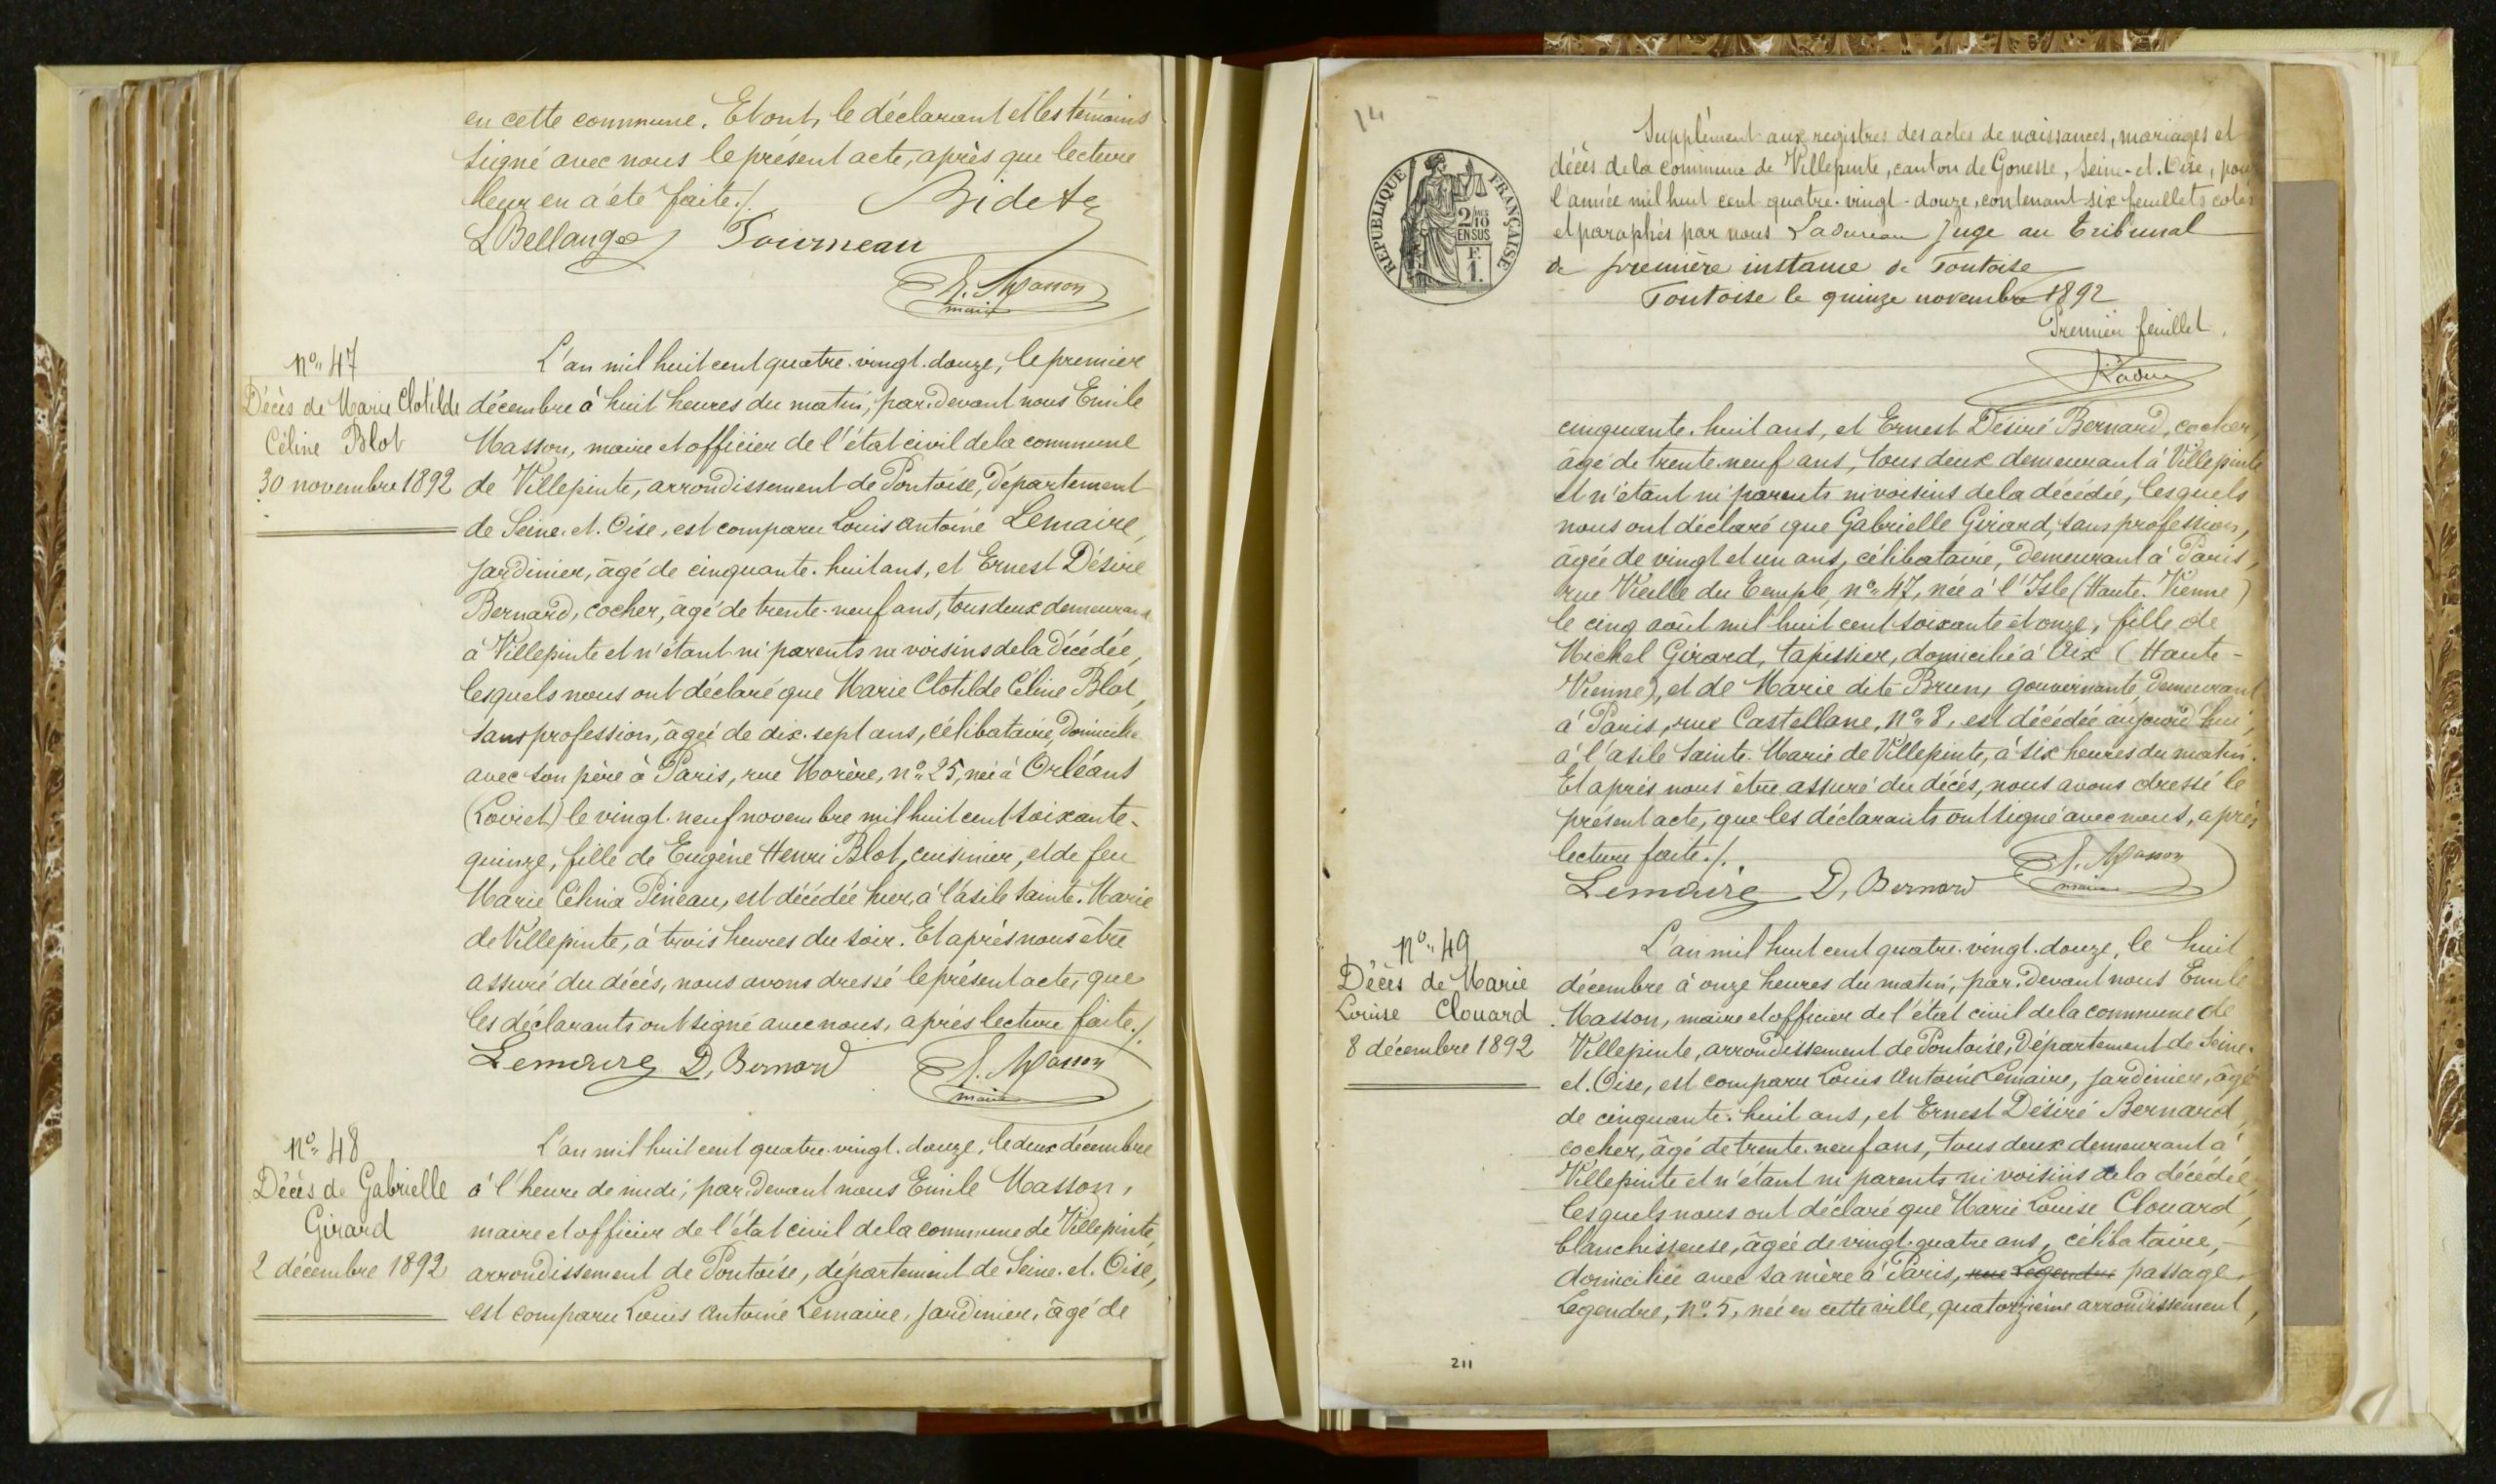 en cette commune. Et ont, le déclarant et les témoins
signé avec nous le présent acte, après que lecture
leur en a été faite ./.
L Bellanger Tourneau
E. Masson
maire
N° 47
Décès de Marie Clotilde
Céline Blot
30 novembre 1892
L'an mil huit cent quatre-vingt-douze, le premier
décembre à huit heures du matin, par-devant nous Emile
Masson, maire et officier de l'état civil de la commune
de Villepinte, arrondissement de Pontoise, Département
de Seine-et-Oise, est comparu Louis Antoine Lemaire,
jardinier, âgé de cinquante-huit ans, et Ernest Désiré
Bernard, cocher, âgé de trente-neuf ans, tous deux demeurant
à Villepinte et n'étant ni parents ni voisins de la décédée,
lesquels nous ont déclaré que Marie Clotilde Céline Blot,
sans profession, âgée de dix-sept ans, célibataire, domiciliée
avec son père à Paris, rue Morère, n° 25, née à Orléans
(Loiret) le vingt-neuf novembre mil huit cent soixante-
quinze, fille de Eugène Henri Blot, cuisinier, et de feu
Marie Célina Pineau, est décédée hier, à l'asile Sainte-Marie
de Villepinte, à trois heures du soir. Et après nous être
assuré du décès, nous avons dressé le présent acte, que
les déclarants ont signé avec nous, après lecture faite ./.
Lemaire D. Bernard E. Masson
maire
N° 48
Décès de Gabrielle
Girard
2 décembre 1892
L'an mil huit cent quatre-vingt-douze, le deux décembre
à l'heure de midi, par-devant nous Emile Masson,
maire et officier de l'état civil de la commune de Villepinte,
arrondissement de Pontoise, département de Seine-et-Oise,
est comparu Louis Antoine Lemaire, jardinier, âgé de
14
RÉPUBLIQUE FRANÇAISE
2/10 EN SUS
F. 1.
Supplément aux registres des actes de naissances, mariages et
décès de la commune de Villepinte, canton de Gonesse, Seine-et-Oise, pour
l'année mil huit cent quatre-vingt-douze, contenant six feuillets cotés
et paraphés par nous Ladureau Juge au Tribunal
de première instance de Pontoise
Pontoise le quinze novembre 1892
Premier feuillet.
cinquante-huit ans, et Ernest Désiré Bernard, cocher,
âgé de trente-neuf ans, tous deux demeurant à Villepinte
et n'étant ni parents ni voisins de la décédée, lesquels
nous ont déclaré que Gabrielle Girard, sans profession,
âgée de vingt et un ans, célibataire, demeurant à Paris,
rue Vieille du Temple, n° 47, née à l'Isle (Haute-Vienne)
le cinq août mil huit cent soixante et onze, fille de
Michel Girard, tapissier, domicilié à Aix (Haute-
Vienne), et de Marie dite Brun, gouvernante, demeurant
à Paris, rue Castellane, N° 8, est décédée aujourd'hui,
à l'asile Sainte-Marie de Villepinte, à six heures du matin.
Et après nous être assuré du décès, nous avons dressé le
présent acte, que les déclarants ont signé avec nous, après
lecture faite ./.
Lemaire D. Bernard E. Masson
maire
N° 49
Décès de Marie
Louise Clouard
8 décembre 1892
L'an mil huit cent quatre-vingt-douze, le huit
décembre à onze heures du matin, par-devant nous Emile
Masson, maire et officier de l'état civil de la commune de
Villepinte, arrondissement de Pontoise, Département de Seine-
et-Oise, est comparu Louis Antoine Lemaire, jardinier, âgé
de cinquante-huit ans, et Ernest Désiré Bernard,
cocher, âgé de trente-neuf ans, tous deux demeurant à
Villepinte et n'étant ni parents ni voisins de la décédée,
lesquels nous ont déclaré que Marie Louise Clouard,
blanchisseuse, âgée de vingt-quatre ans, célibataire,
domiciliée avec sa mère à Paris, rue Legendre passage
Legendre, N° 5, née en cette ville, quatorzième arrondissement,
211